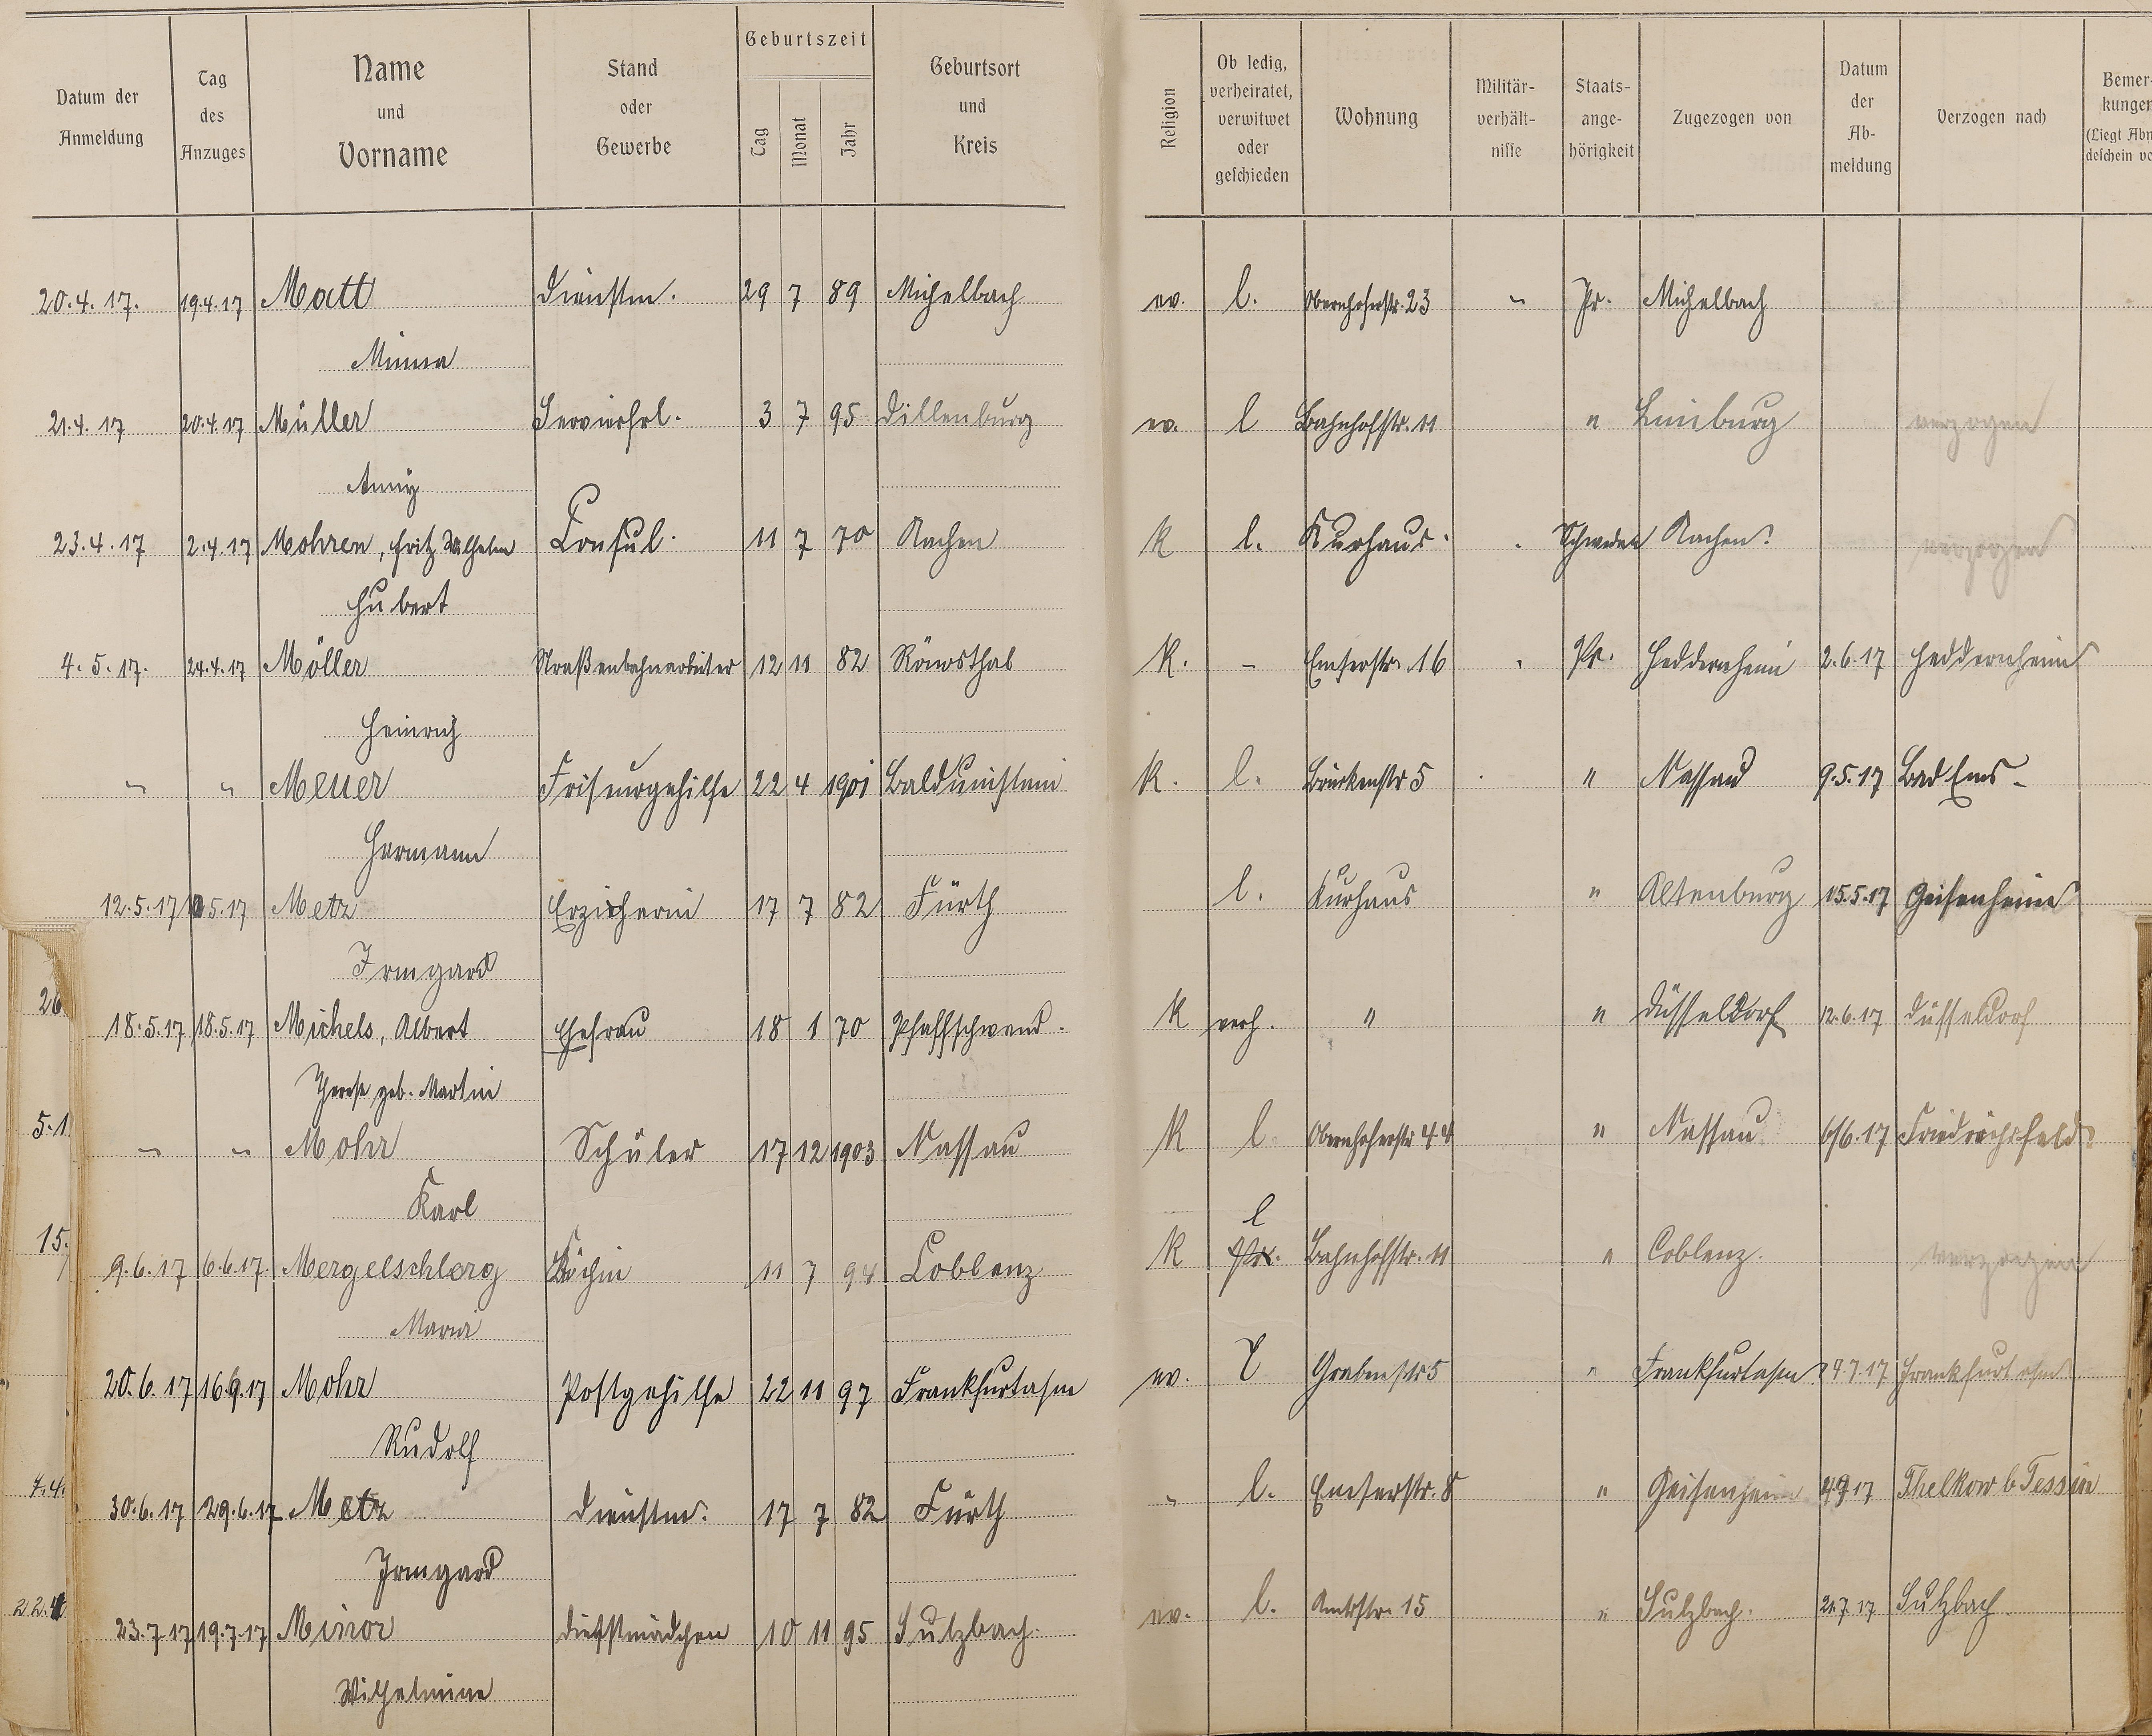 Datum der Anmeldung | Tag des Anzuges | Name und Vorname | Stand oder Gewerbe | Geburtszeit Tag Monat Jahr | Geburtsort und Kreis | Religion | Ob ledig, verheiratet, verwitwet oder geschieden | Wohnung | Militär-verhält-nisse | Staats-ange-hörigkeit | Zugezogen von | Datum der Ab-meldung | Verzogen nach | Bemer-kungen (Liegt Abm deschein vo
20.4.17. 19.4.17 Matt Dienstm. 29 7 89 Michelbach ev. l. Obernhoferstr. 23 " Pr. Michelbach
Minna
21.4.17 20.4.17 Müller Servierfrl. 3 7 95 Dillenburg ev. l Bahnhofstr. 11 " Limburg verzogen
Anny
23.4.17 2.4.17 Mohren, Fritz Wilhelm Consul. 11 7 70 Aachen K l. Kurhaus. Schweden Aachen. verzogen
Hubert
4.5.17. 24.4.17 Möller Straßenbahnarbeiter 12 11 82 K. - Emserstr. 16 Pr. Heddernheim 2.6.17 Heddernheim
Heinrich
" " Meuer Friseurgehilfe 22 4 1901 Balduinstein K. l. Brückenstr 5 " Nassau 9.5.17 Bad Ems.
Hermann
12.5.17 5.17 Metz Erzieherin 17 7 82 Fürth l. Kurhaus " Altenburg 15.5.17 Geisenheim
Irmgard
26
18.5.17 18.5.17 Michels, Albert Ehefrau 18 1 70 Pfaffschwend. K verh. " " Düsseldorf 12.6.17 Düsseldorf
Therese geb. Martin
5.1
" " Mohr Schüler 17 12 1903 Nassau K l. Obernhoferstr 44 " Nassau 6/6.17 Friedrichsfeld.
Karl
l
15.
9.6.17 6.6.17. Mergelschlerg Köchin 11 7 94 Coblenz K Bahnhofstr. 11 " Coblenz. verzogen
Maria
20.6.17 16.6.17 Mohr Postgehilfe 22 11 97 Frankfurt a/m ev. l Grabenstr 5 " Frankfurt a/m 4.7.17 Frankfurt a/m
Rudolf
7.4.
30.6.17 29.6.17 Metz Dienstm. 17 7 82 Fürth " l. Emserstr. 8 " Geisenheim 4917 Thelkow b Tessin
Irmgard
22.4
23.7.17 19.7.17 Minor Dienstmädchen 10 11 95 Sulzbach. ev. l. Amtsstr. 15 " Sulzbach. 21.7.17 Sulzbach
Wilhelmine